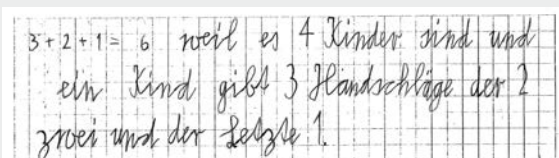 3+2+1= 6 weil es 4 Kinder sind und
ein Kind gibt 3 Handschläge der 2
zwei und der Letzte 1.